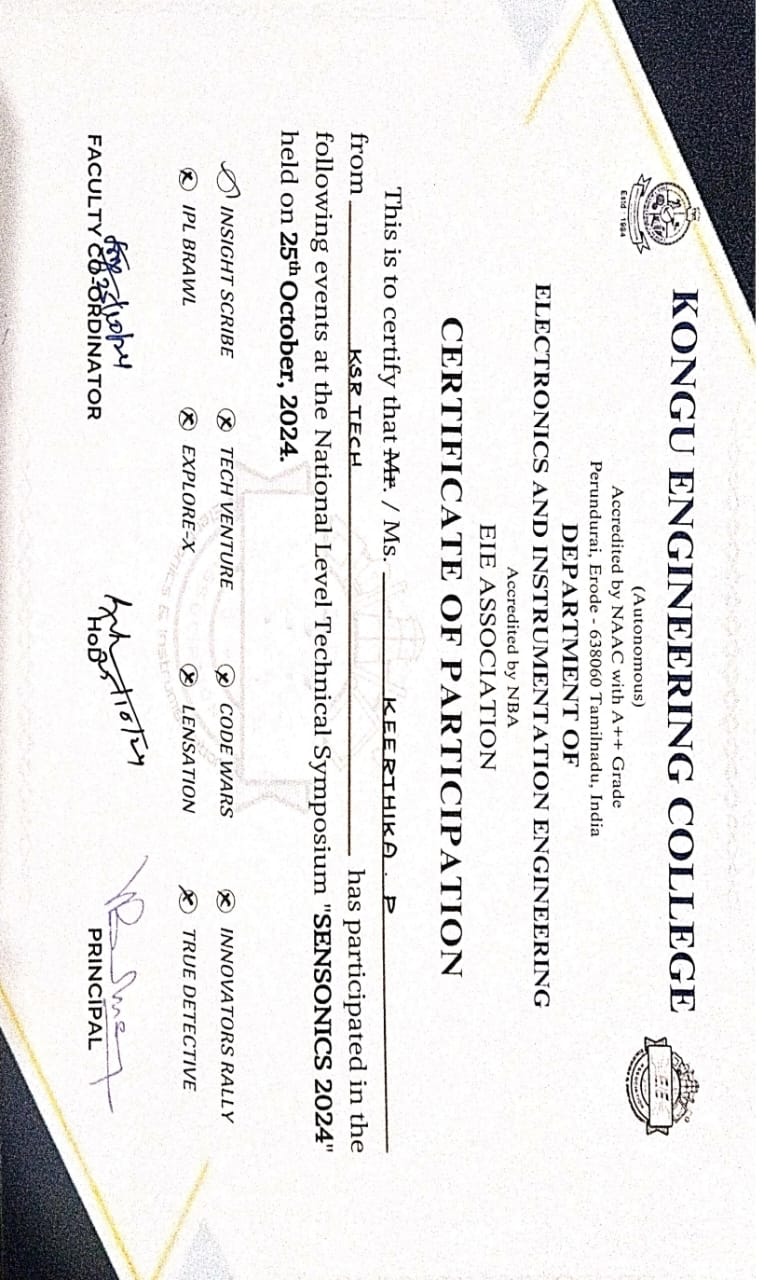 KONGU ENGINEERING COLLEGE
Estd - 1984
EIE
ASSOCIATION
(Autonomous)
Accredited by NAAC with A++ Grade
Perundurai, Erode - 638060 Tamilnadu, India
DEPARTMENT OF
ELECTRONICS AND INSTRUMENTATION ENGINEERING
Accredited by NBA
EIE ASSOCIATION
CERTIFICATE OF PARTICIPATION
This is to certify that Mr. / Ms. KEERTHIKA . P
from KSR TECH has participated in the
following events at the National Level Technical Symposium "SENSONICS 2024"
held on 25th October, 2024.
INSIGHT SCRIBE TECH VENTURE CODE WARS INNOVATORS RALLY
IPL BRAWL EXPLORE-X LENSATION TRUE DETECTIVE
25/10/24 25/10/24
FACULTY CO-ORDINATOR HoD PRINCIPAL